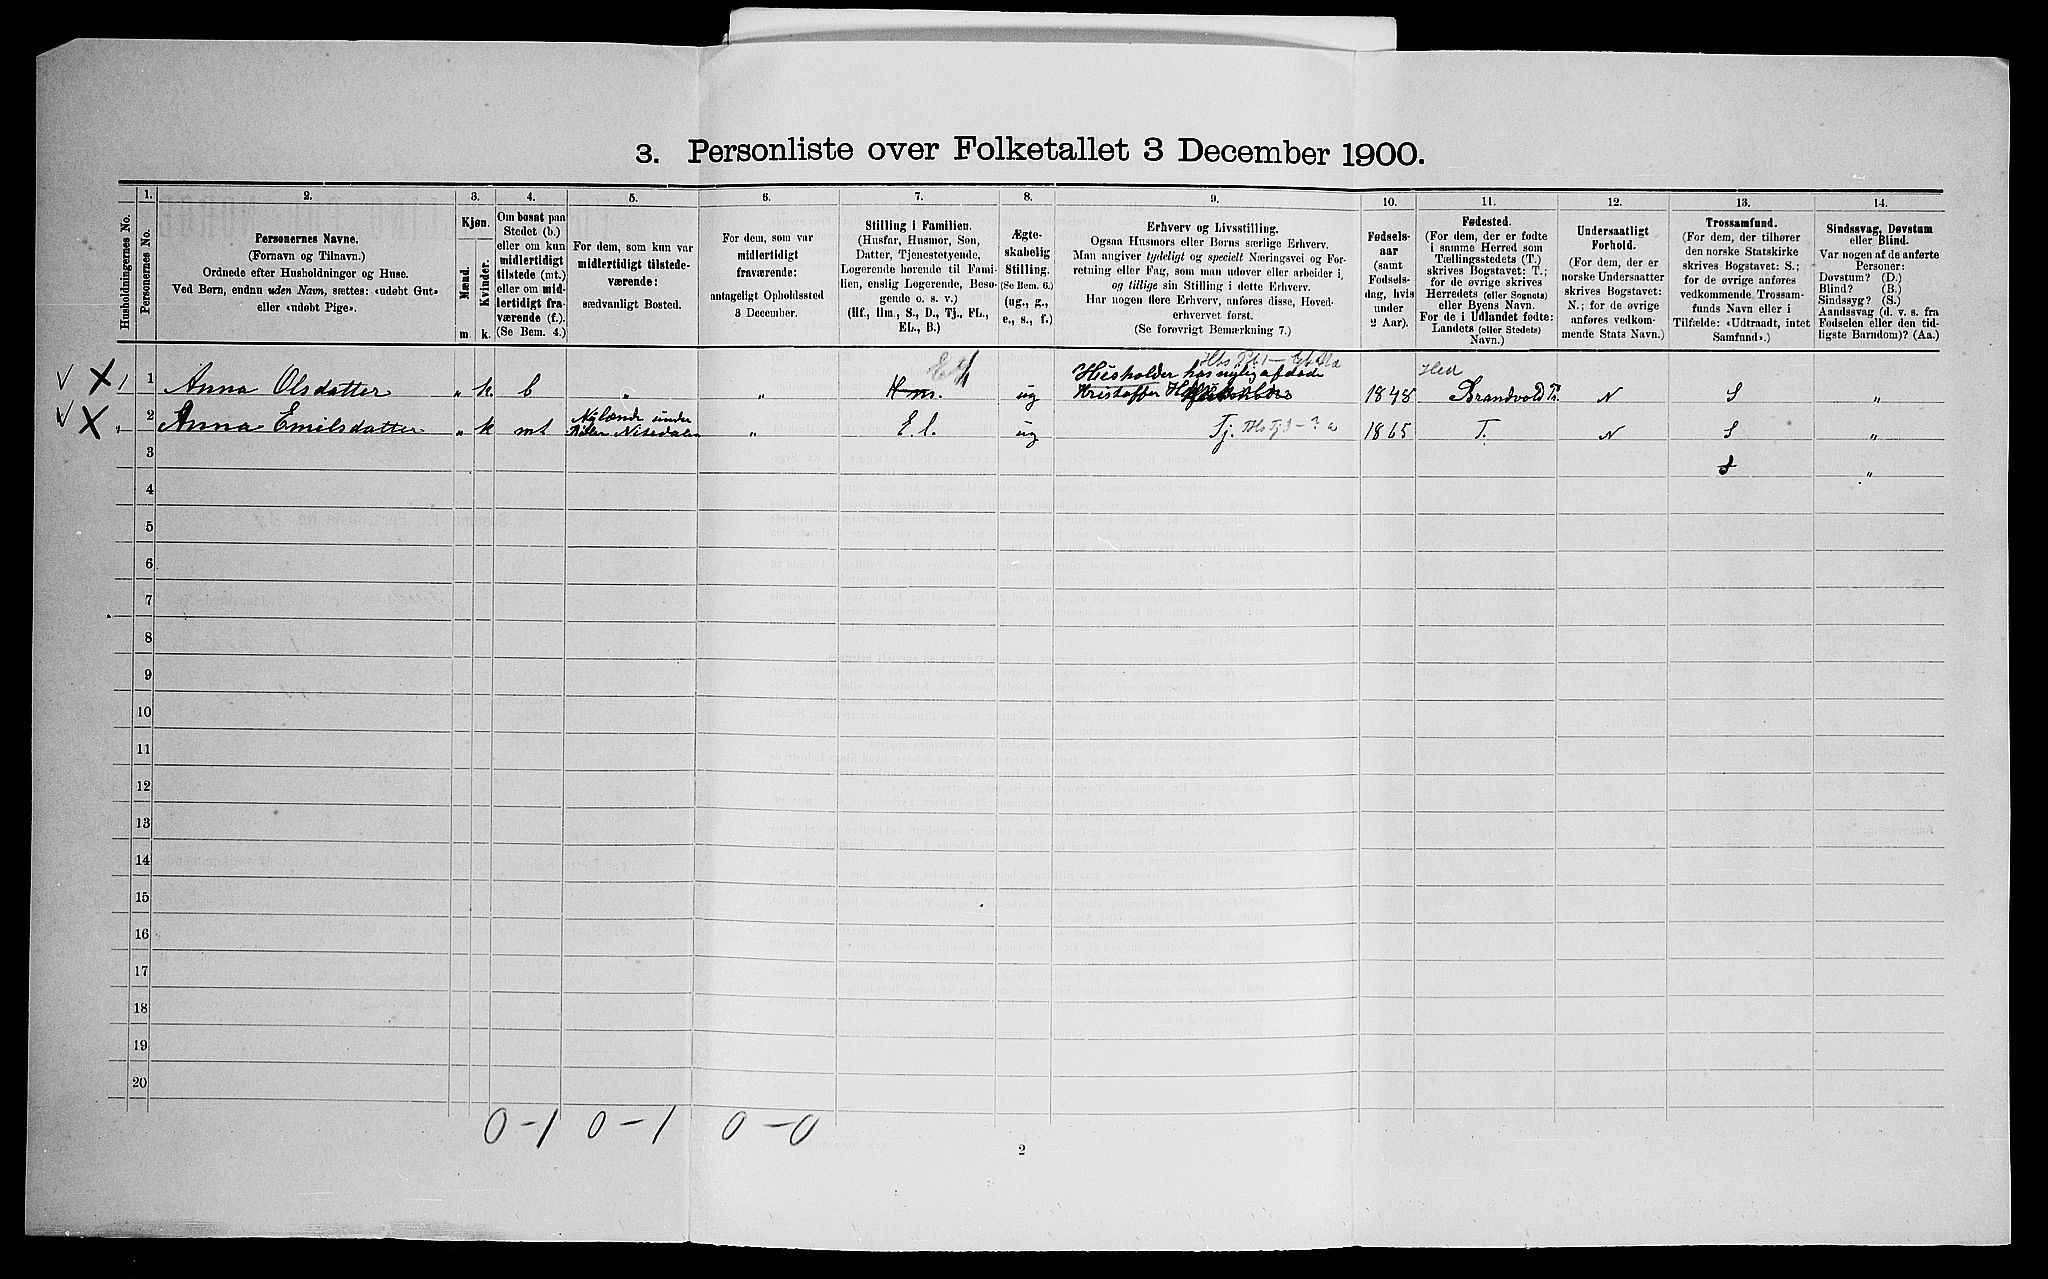 3. Personliste over Folketallet 3 December 1900.
Husholdningernes No.
1.
Personernes No.
2.
Personernes Navne.
(Fornavn og Tilnavn.)
Ordnede efter Husholdninger og Huse.
Ved Børn, endnu uden Navn, sættes: «udøbt Gut»
eller «udøbt Pige».
3.
Kjøn.
Mænd.
Kvinder.
m.
k.
4.
Om bosat paa
Stedet (b.)
eller om kun
midlertidigt
tilstede (mt.)
eller om mid-
lertidigt fra-
værende (f.).
(Se Bem. 4.)
5.
For dem, som kun var
midlertidigt tilstede-
værende:
sædvanligt Bosted.
6.
For dem, som var
midlertidigt
fraværende:
antageligt Opholdssted
3 December.
7.
Stilling i Familien.
(Husfar, Husmor, Søn,
Datter, Tjenestetyende,
Logerende hørende til Fami-
lien, enslig Logerende, Besø-
gende o. s. v.)
(Hf., Hm., S., D., Tj., FL.,
EL., B.)
8.
Ægte-
skabelig
Stilling.
(Se Bem. 6.)
(ug., g.,
e., s., f.)
9.
Erhverv og Livsstilling.
Ogsaa Husmors eller Børns særlige Erhverv.
Man angiver tydeligt og specielt Næringsvei og For-
retning eller Fag, som man udøver eller arbeider i,
og tillige sin Stilling i dette Erhverv.
Har nogen flere Erhverv, anføres disse, Hoved-
erhvervet først.
(Se forøvrigt Bemærkning 7.)
10.
Fødsels-
aar
(samt
Fødsels-
dag, hvis
under
2 Aar).
11.
Fødested.
(For dem, der er fødte
i samme Herred som
Tællingsstedets (T.)
skrives Bogstavet: T.;
for de øvrige skrives
Herredets (eller Sognets)
eller Byens Navn.
For de i Udlandet fødte:
Landets (eller Stedets)
Navn.)
12.
Undersaatligt
Forhold.
(For dem, der er
norske Undersaatter
skrives Bogstavet:
N.; for de øvrige
anføres vedkom-
mende Stats Navn.)
13.
Trossamfund.
(For dem, der tilhører
den norske Statskirke
skrives Bogstavet: S.;
for de øvrige anføres
vedkommende Trossam-
funds Navn eller i
Tilfælde: «Udtraadt, intet
Samfund».)
14.
Sindssvag, Døvstum
eller Blind.
Var nogen af de anførte
Personer:
Døvstum? (D.)
Blind? (B.)
Sindssyg? (S.)
Aandssvag (d. v. s. fra
Fødselen eller den tid-
ligste Barndom)? (Aa.)
1 1 Anna Olsdatter " k. b " " Hm. El ug Husholder hos nylig afdøde
Kristoffer 1848 Brandvold N S "
" 2 Anna Emilsdatter " k mt Nylænde under
Nitedalen " El. ug Tj. 1865 T. N S "
3 S "
4
5
6
7
8
9
10
11
12
13
14
15
16
17
18
19
20
0-1 0-1 0-0
2